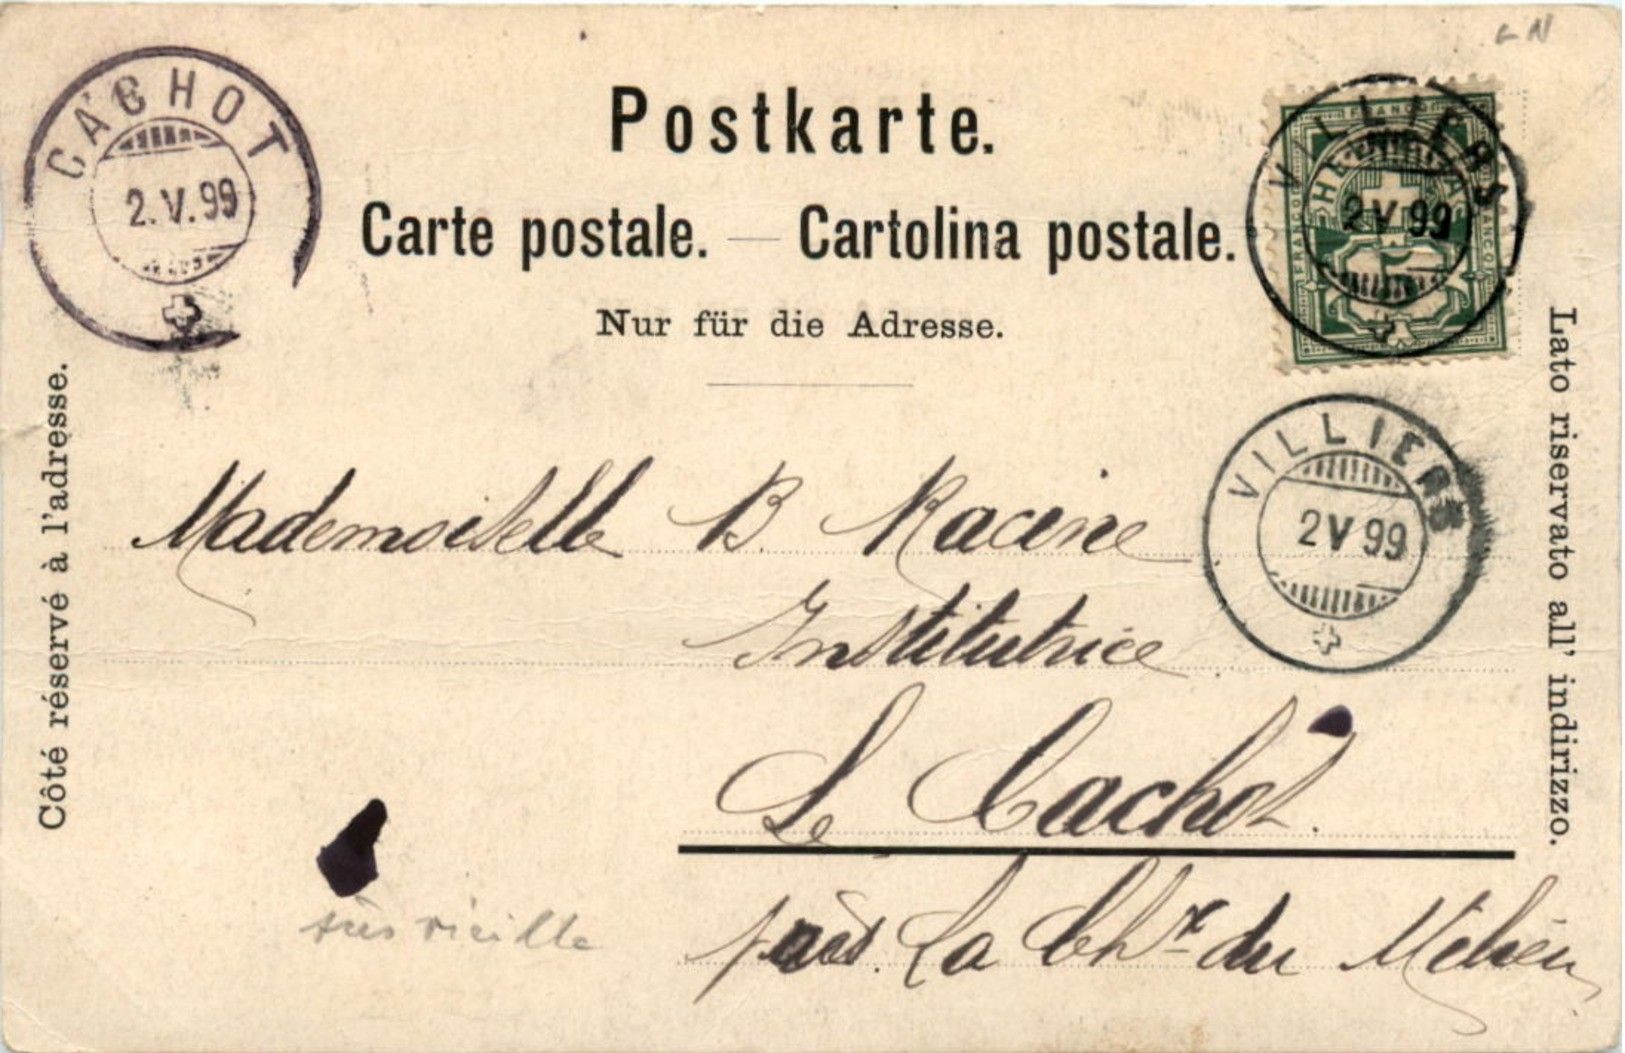 CACHOT
2.V.99
Postkarte.
Carte postale. — Cartolina postale.
Nur für die Adresse.
FRANCO
HELVETIA
5
VILLIERS
2 V 99
VILLIERS
2 V 99
Côté réservé à l'adresse.
Lato riservato all' indirizzo.
Mademoiselle B. Racine
Institutrice
Le Cachot.
près. La Chx du Milieu
très vieille